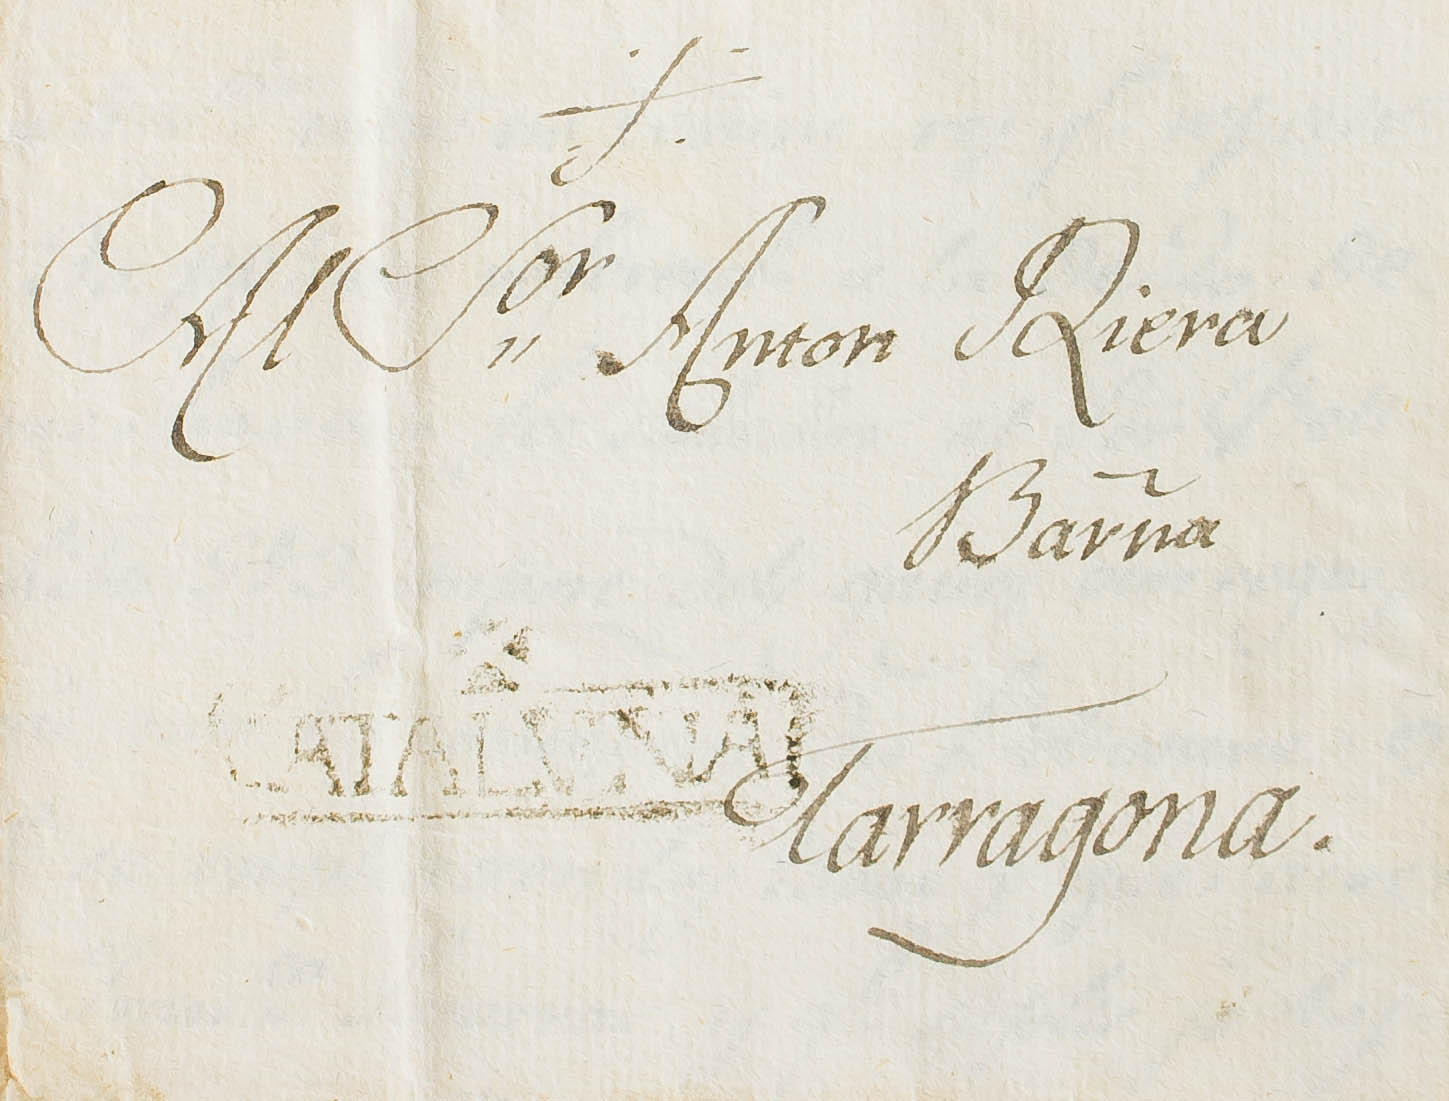 Al Sor Anton Riera
Barña
CATALUÑA
Tarragona.